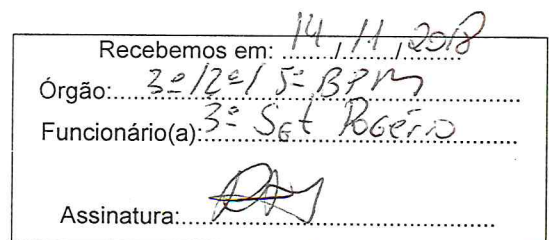 Recebemos em: 14, 11, 2018
Órgão: 3º/2ª/5º BPM
Funcionário(a): 3º Sgt Rogério
Assinatura: